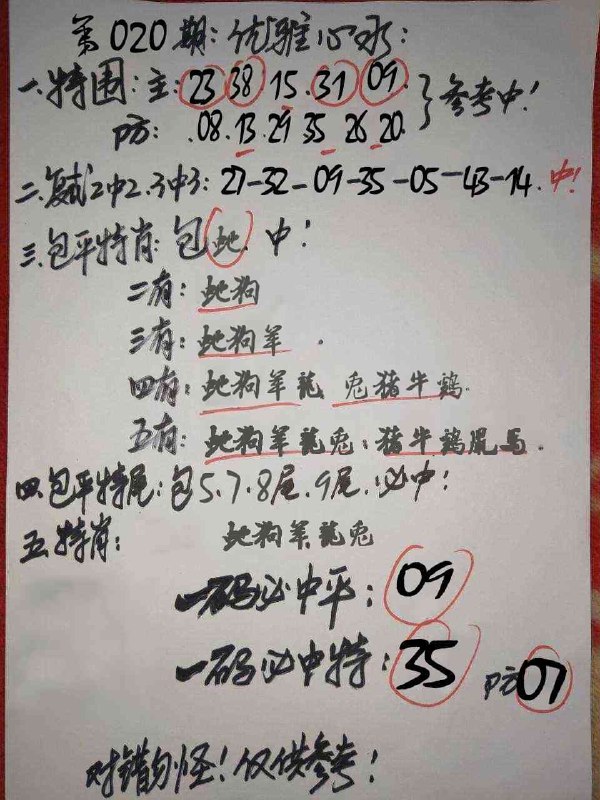 第020期:优雅心水:
一.特围:主:23 38 15.31 09.
防:.08.13.29 35.26 20. }参考中!
二.复试2中2.3中3:27-32-09-35-05-43-14.中!
三.包平特肖:包蛇.中!
二有:蛇狗
三有:蛇狗羊.
四有:蛇狗羊龍 兔猪牛鷄.
五有:蛇狗羊龍兔:猪牛鷄鼠马.
四.包平特尾:包5.7.8尾.9尾.必中!
五.特肖: 蛇狗羊龍兔
一码必中平:09
一码必中特:35 防07
对错勿怪!仅供参考!